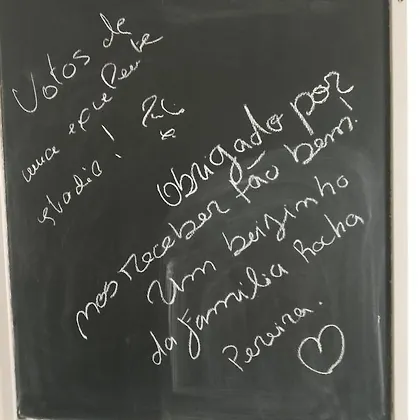 Votos de
uma excelente
estadia!
Obrigado por
nos receber tão bem!
Um beijinho
da família Rocha
Pereira.